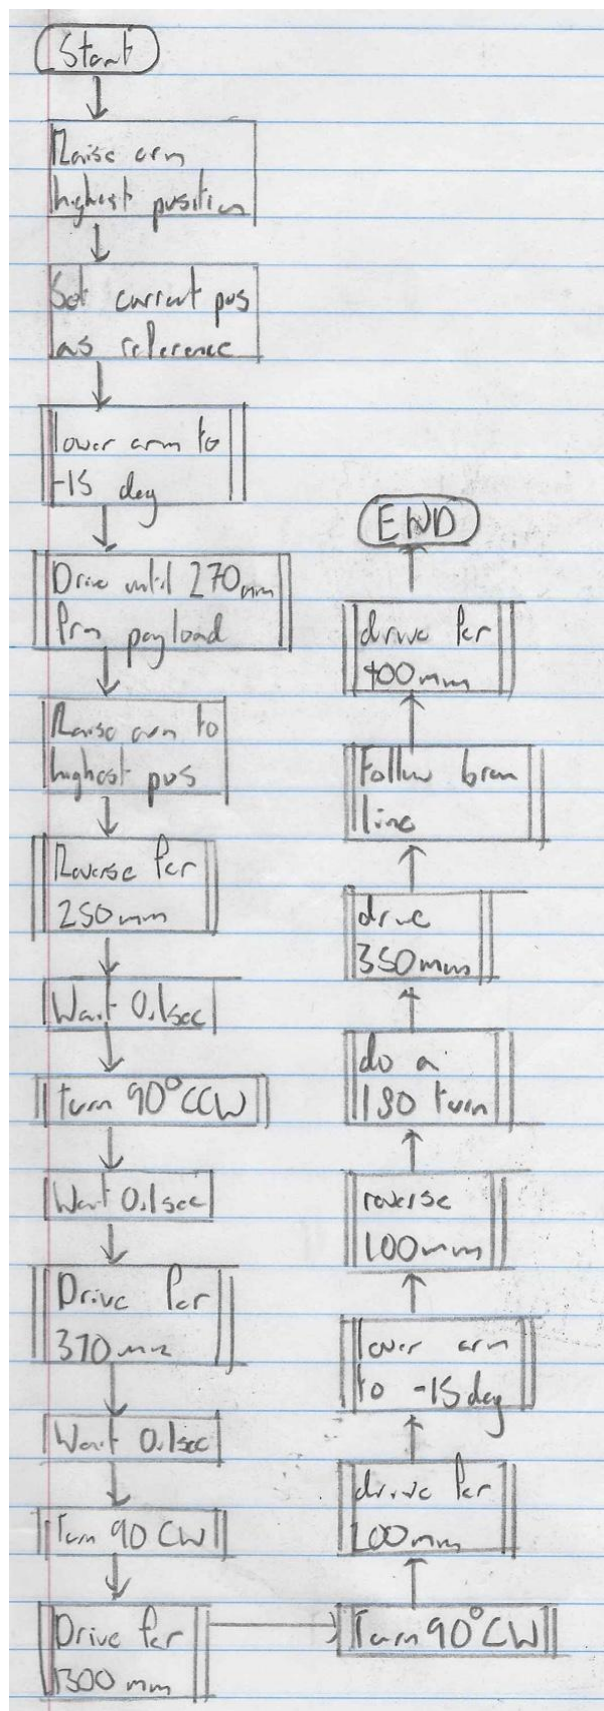 Start
Raise arm
highest position
Set current pos
as reference
lower arm to
-15 deg
Drive until 270mm
from payload
Raise arm to
highest pos
Reverse for
250mm
Wait 0.1sec
turn 90° CCW
Wait 0.1sec
Drive for
370mm
Wait 0.1sec
Turn 90 CW
Drive for
1300mm
Turn 90° CW
drive for
100mm
lower arm
to -15deg
reverse
100mm
do a
180 turn
drive
350mm
Follow
line
drive for
400mm
END